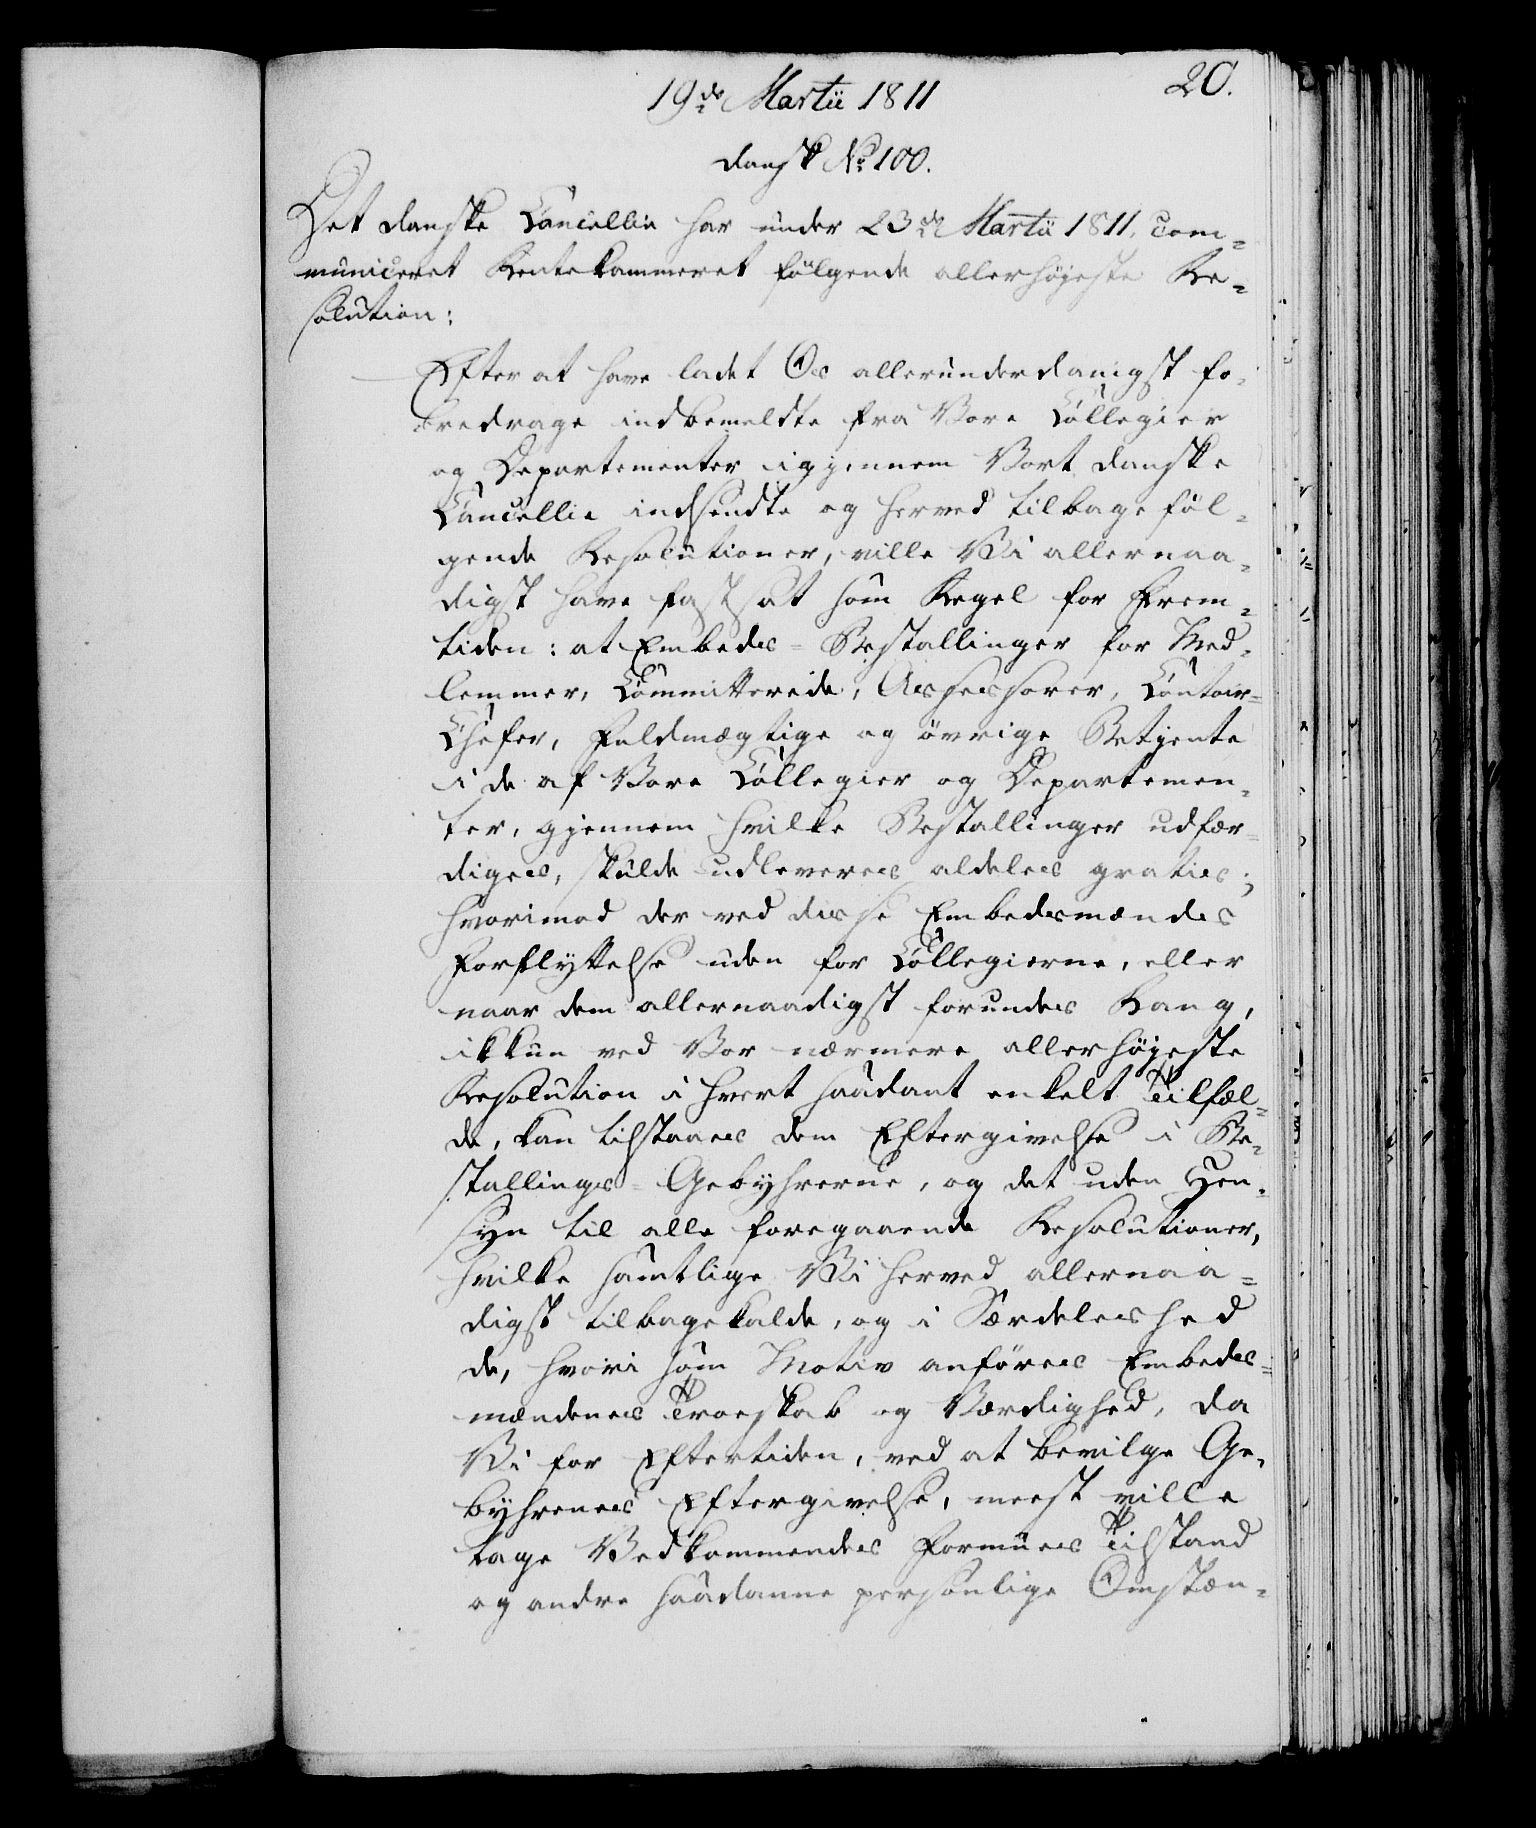 20.
19de Martii 1811
dansk No 100.
Det danske Cancellie har under 23de Martii 1811, com-
municeret Rentekammeret følgende allerhøjeste Re-
solution:
Efter at have ladet Os allerunderdanigst fo-
redrage indbemeldte fra Vore Collegier
og Departementer igjennem Vort danske
Cancellie indsendte og herved tilbage føl-
gende Resolutioner, ville Vi allernaa-
digst have fastsat som Regel for Frem-
tiden: at Embeds-Bestallinger for Med-
lemmer, Committerede, Assessorer, Contoir-
Chefer, Fuldmægtige og øvrige Betjente
i de af Vore Collegier og Departemen-
ter, gjennem hvilke Bestallinger udfær-
diges, skulde udleveres aldeles gratis;
hvorimod der ved disse Embedsmænds
Forflyttelse uden for Collegierne, eller
naar dem allernaadigst forundes Rang,
ikkun ved Vor nærmere allerhøjeste
Resolution i hvert saadant enkelt Tilfæl-
de, kan tilstaaes dem Eftergivelse i Be-
stallings-Gebyhrerne, og det uden Hen-
syn til alle foregaaende Resolutioner,
hvilke samtlige Vi herved allernaa-
digst tilbagekalde, og i Særdeleshed
de, hvori som Motiv anføres Embeds-
mændenes Troeskab og Værdighed, da
Vi for Eftertiden, ved at bevilge Ge-
byhrenes Eftergivelse, meest ville
tage Vedkommendes Formues Tilstand
og andre saadanne personlige Omstæn-